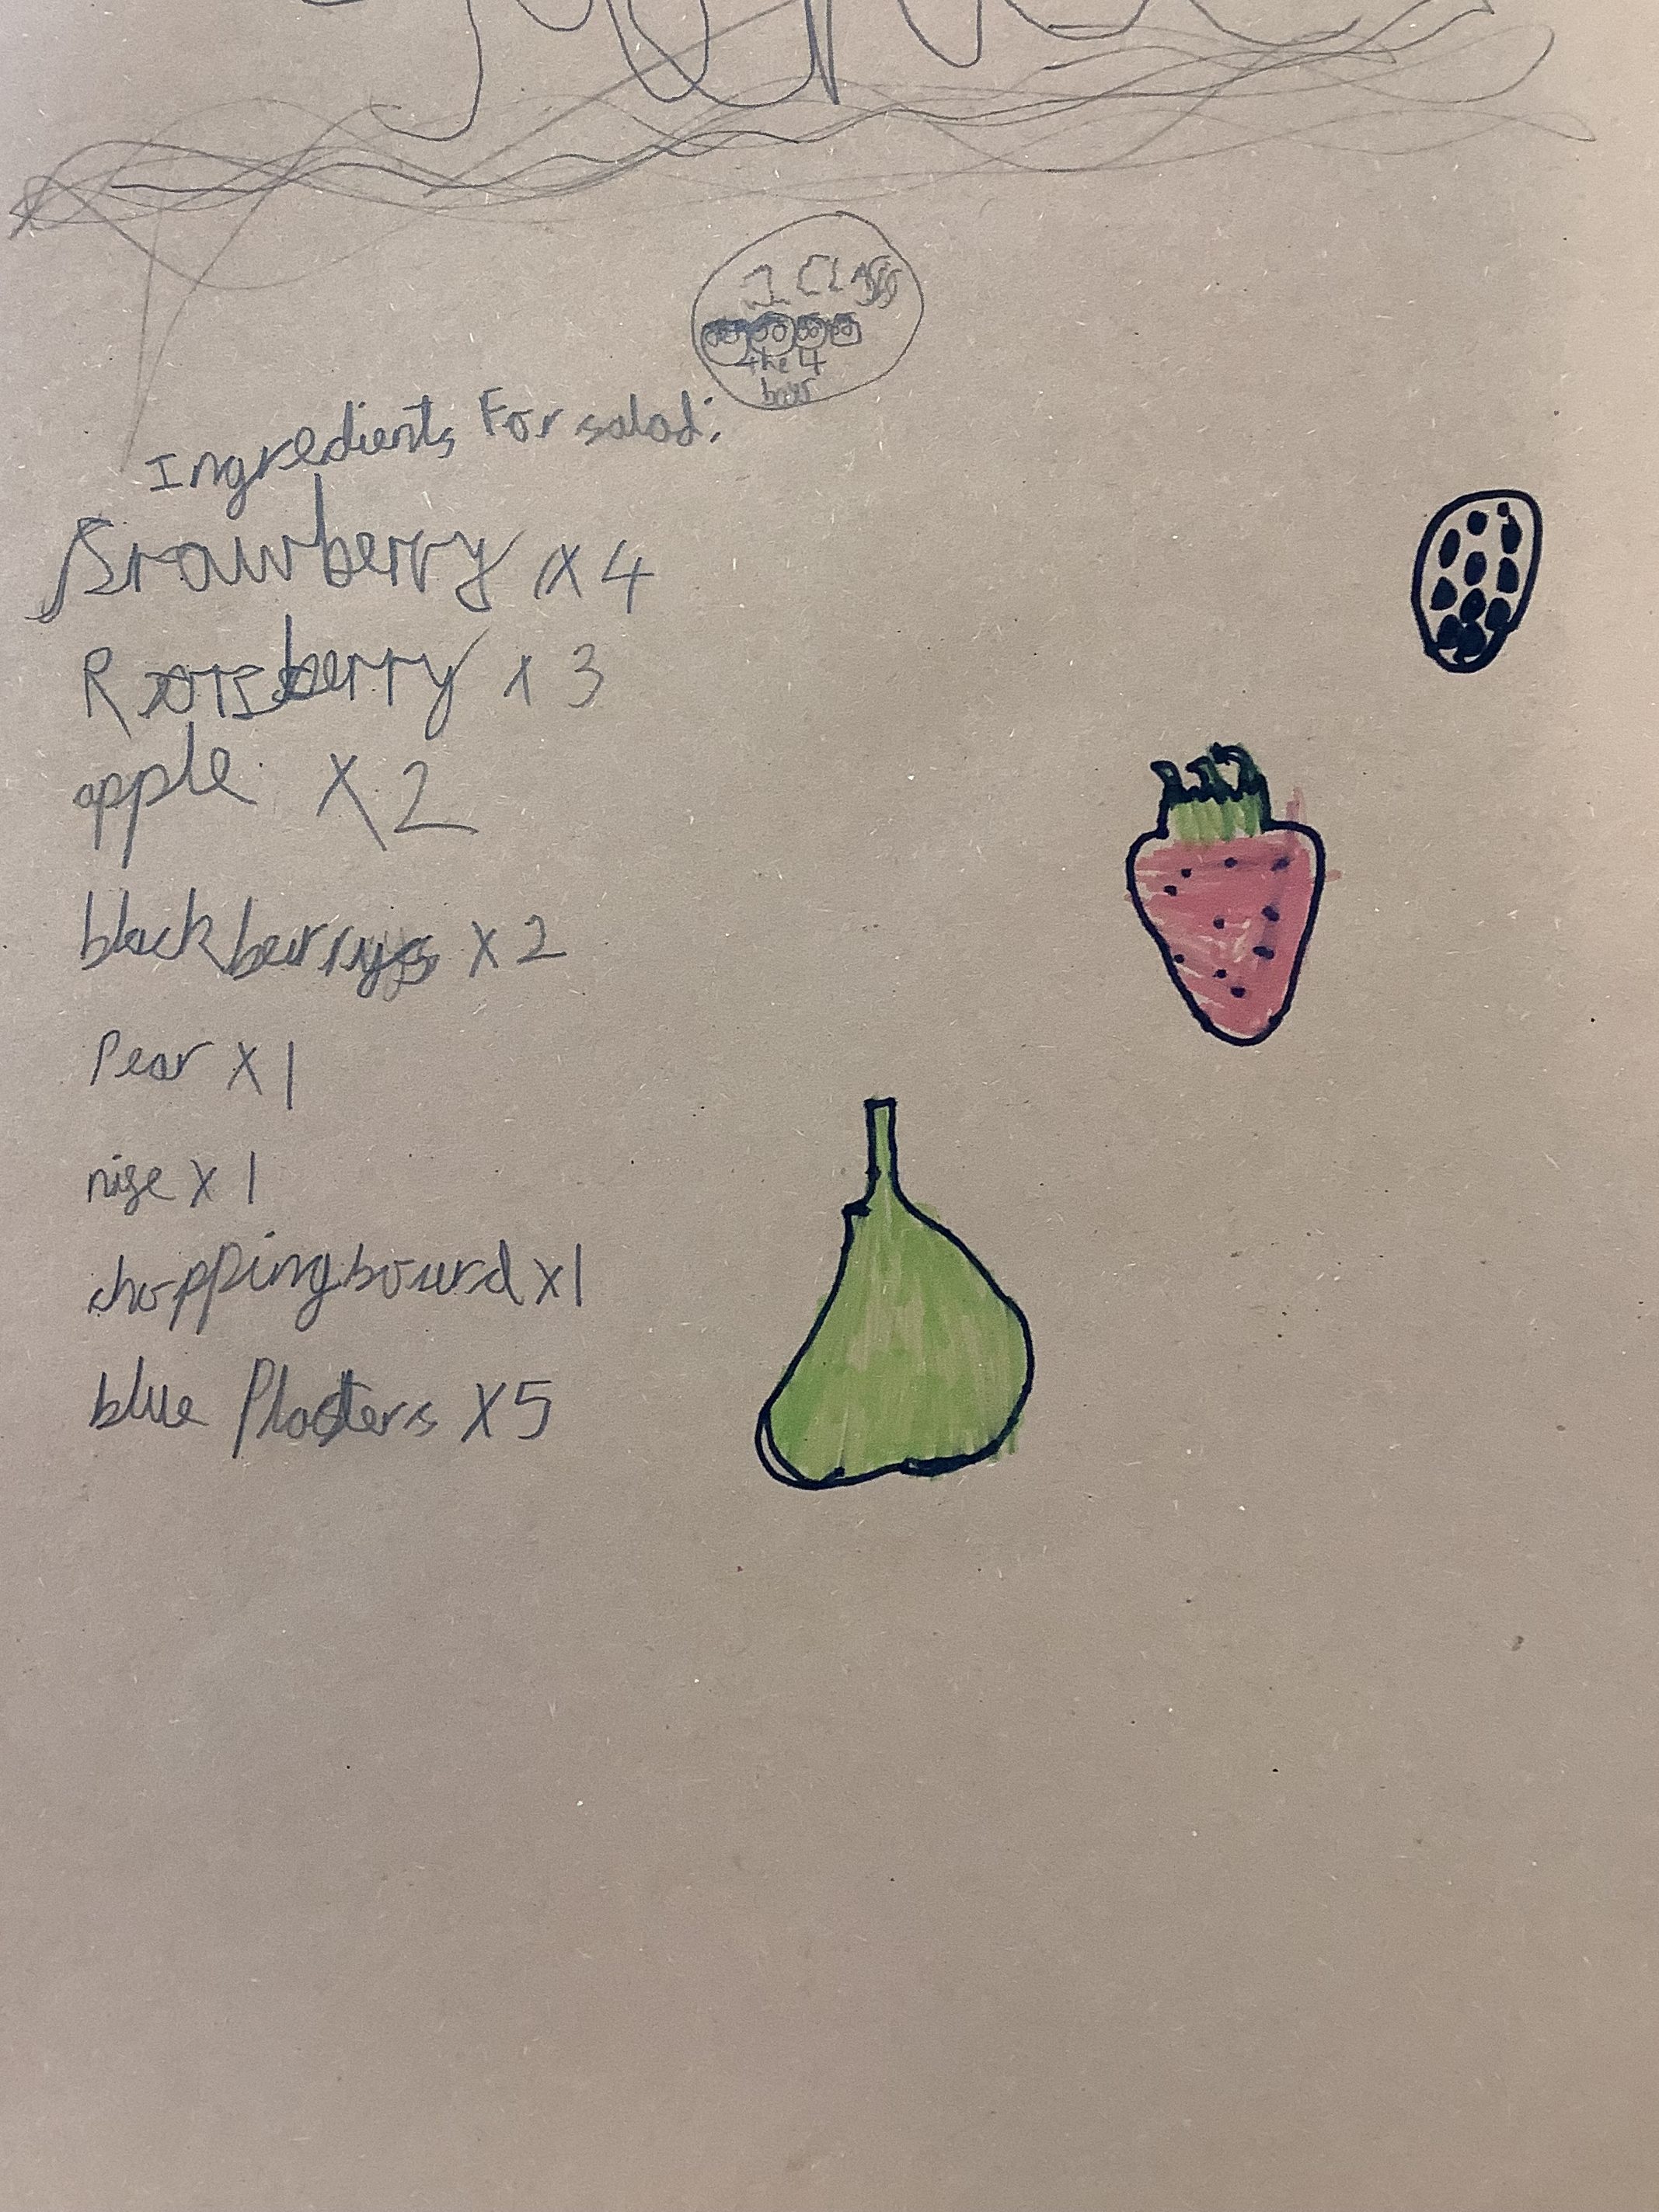 J CLASS
the 4
boys
Ingredients For salad:
Srawberry x 4
Rarsberry x 3
apple x 2
blackberrys x 2
Pear x 1
nife x 1
chopping bourd x1
blue Plasters x5